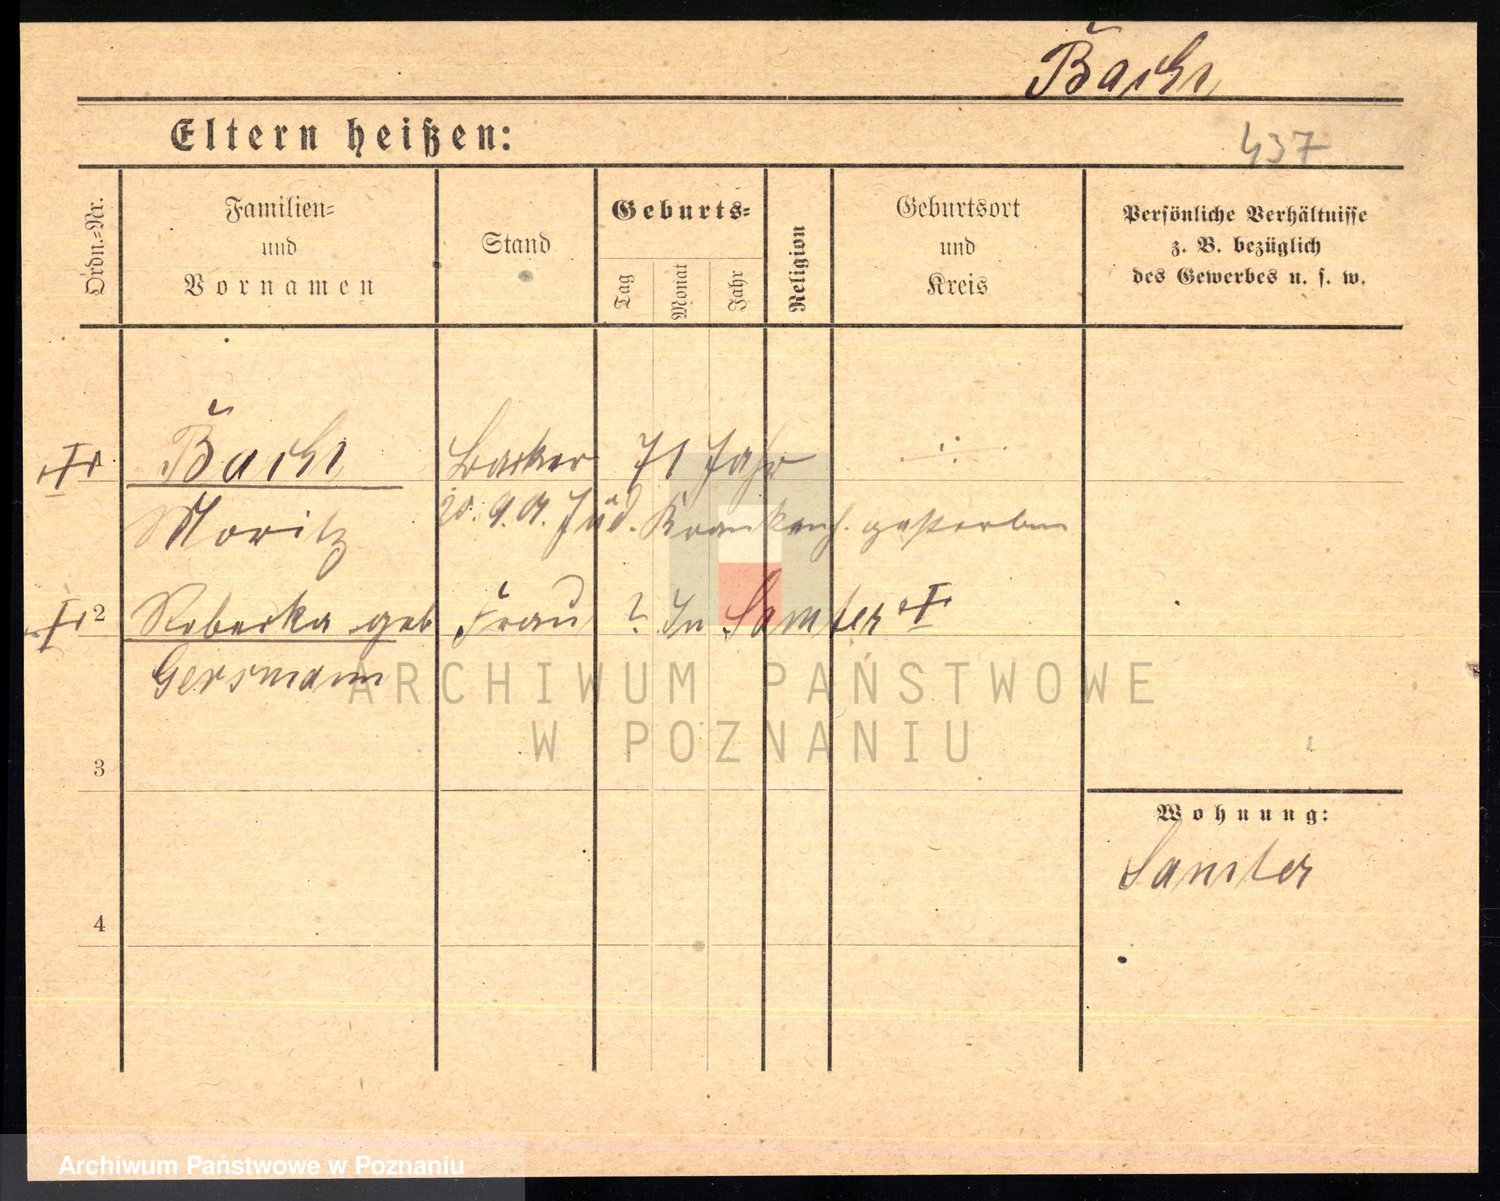 Bach
Eltern heißen:
437
Ordn.-Nr.
Familien-
und
Vornamen
Stand
Geburts-
Tag
Monat
Jahr
Religion
Geburtsort
und
Kreis
Persönliche Verhältnisse
z. B. bezüglich
des Gewerbes u. s. w.
Bach 71 Jahr
Moritz Jüd. Krankenh. gestorben
2 Rebecka geb Frau ? In Samter
Gersmann
ARCHIWUM PAŃSTWOWE
W POZNANIU
3
Wohnung:
Samter
4
Archiwum Państwowe w Poznaniu